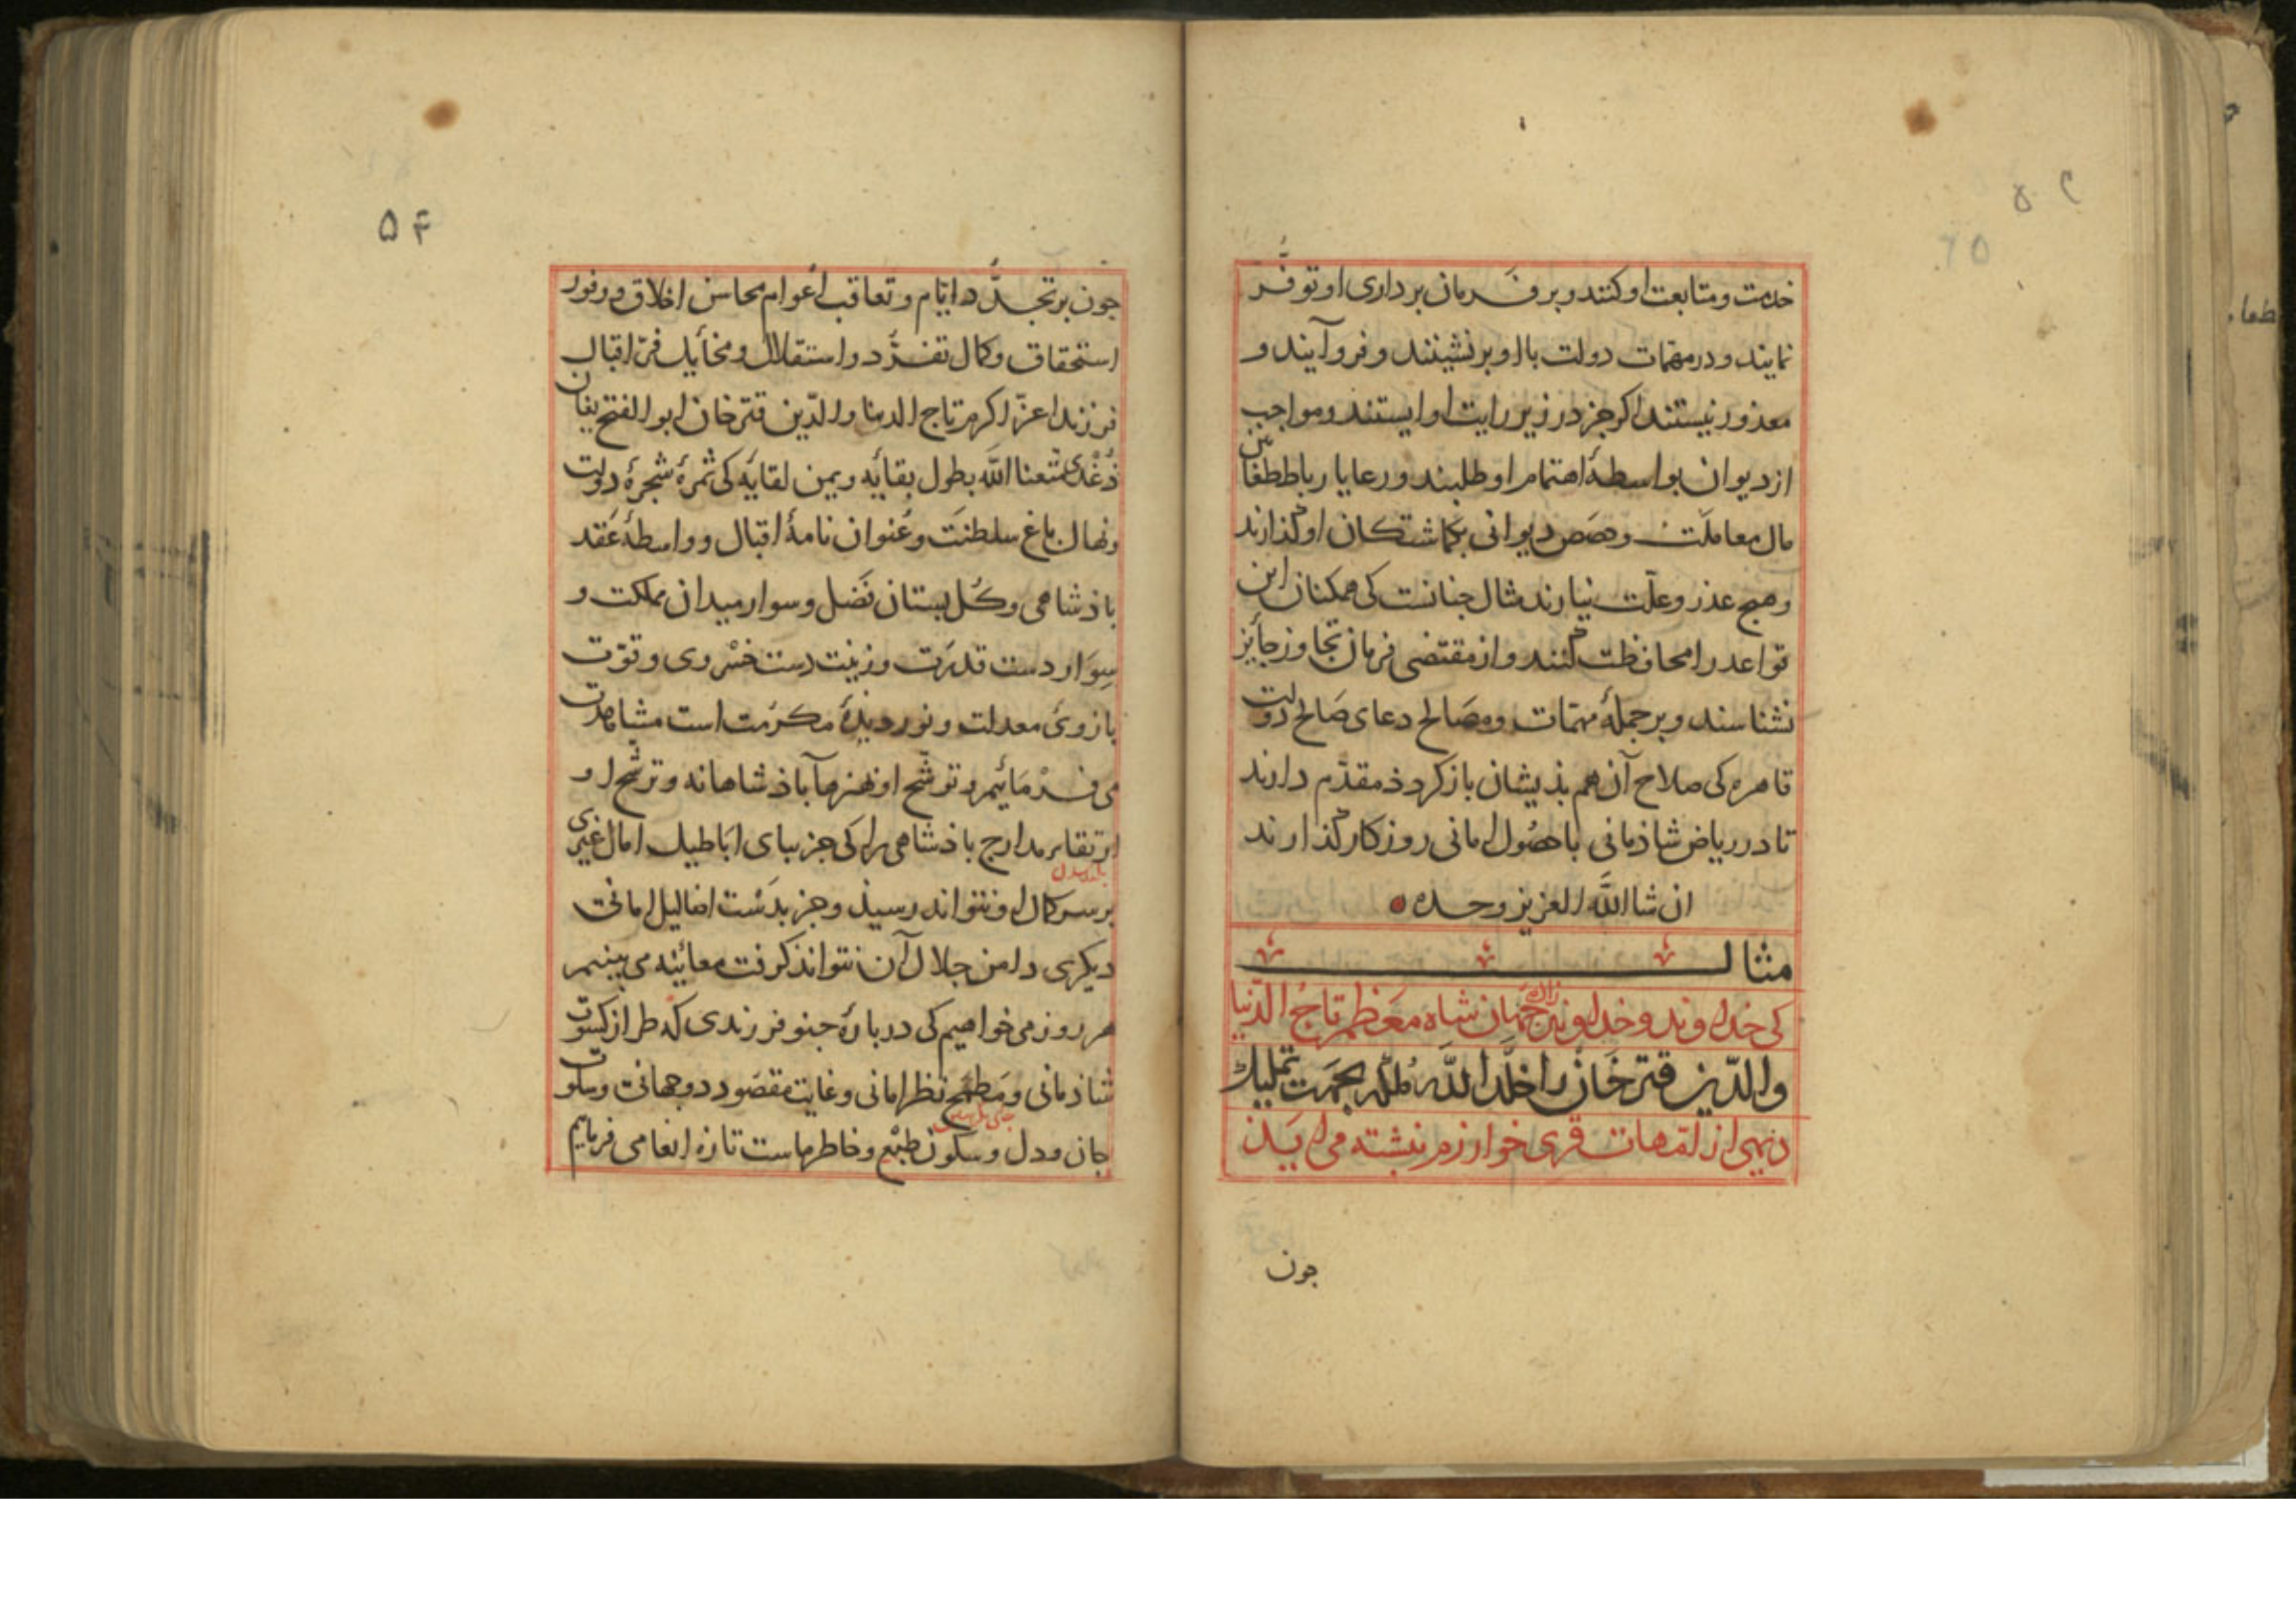 خدمت و متابعت او کنند و بر فرمان برداری او توفّر
نمایند و در مهمّات دولت با او برنشینند و فروآیند و
معذور نیستند اکر جز در زیر رایت او ایستند و مواجب
از دیوان بواسطهٔ اهتمام او طلبند و رعایا رباط طغانین
مال معاملت و حصص دیوانی بکماشتکان او کذارند
و هیج عذر و علّت نیارند مثال جنانست کی همکنان این
قواعد را محافظت کنند و از مقتضی فرمان تجاوز جایز
نشناسند و بر جملهٔ مهمّات و مصالح دعای صالح دولت
قاهره کی صلاح آن هم بذیشان باز کردذ مقدّم دارند
تا در ریاض شاذمانی با حصُول امانی روزکار کذارند
ان شا اللّه العزیز وحده
مثال
کی خداوند و خداوند زاده جهان شاه معظم تاج الدّنیا
والدّین قترخان را خلّد اللّه ظلّه بجهت تملیک
دیهی از امّهات قری خوارزم نبشته می ایذ
جون
۵۴
جون بر تجدّد ایّام و تعاقب اعوام محاسن اخلاق و وفور
استحقاق و کمال تفرّد و استقلال و مخایل فرّ اقبال
فرزند اعزّ اکرم تاج الدنیا والدّین قترخان ابوالفتح یغان
دُغدی متّعنا اللّه بطول بقایه و یمن لقایه کی ثمرهٔ شجرهٔ دولت
و نهال باغ سلطنت و عنوان نامهٔ اقبال و واسطهٔ عقد
باذشاهی و کُل بستان فضل و سوار میدان مملکت و
سِوَار دست قدرت و زینت دست خسروی و قوّت
بازوی معدلت و نور دیدهٔ مکرمت است مشاهدت
می فرمائیم و توشّح او بهنرهآ باذشاهانه و ترشّح او
ارتقا بر مدارج باذشاهی را کی جز ببای اباطیل امال غیری
بر سر کمال او نتواند رسیذ و جز بدَست اضالیل امانی
دیکری دامن جلال آن نتواند کرفت معاینه می بینیم
هر روز می خواهیم کی در بارهٔ جنو فرزندی که طراز کسوت
شاذمانی و مطمح نظر امانی و غایت مقصود دوجهانی و سلوت
جان و دل و سکون طبع و خاطر ماست تازه انعامی فرماییم